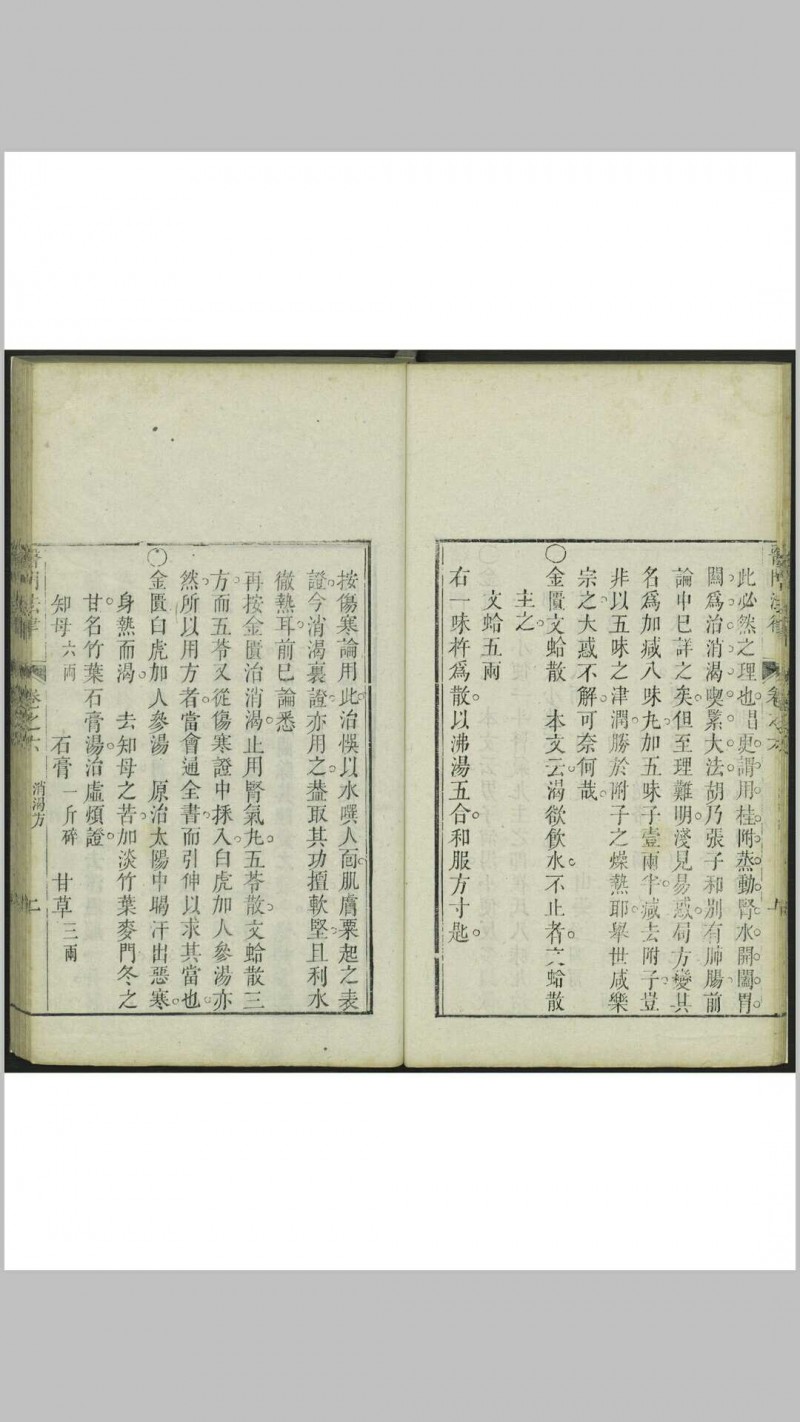 此必然之理也但更謂用桂附蒸動腎水開闔胃
關爲治消渴喫緊大法胡乃張子和別有肺腸前
論中已詳之矣但至理難明淺見易惑局方變其
名爲加減八味丸加五味子壹兩半減去附子豈
非以五味之津潤勝於附子之燥熱耶舉世咸樂
宗之大惑不解可奈何哉
〇金匱文蛤散 本文云渴欲飲水不止者文蛤散
主之
文蛤五兩
右一味杵爲散以沸湯五合和服方寸匙
按傷寒論用此治悞以水噀人面肌膚粟起之表
證今消渴裏證亦用之葢取其功擅軟堅且利水
徹熱耳前已論悉
再按金匱治消渴止用腎氣丸五苓散文蛤散三
方而五苓又從傷寒證中採入白虎加人參湯亦
然所以用方者當會通全書而引伸以求其當也
〇金匱白虎加人參湯 原治太陽中暍汗出惡寒
身熱而渴 去知母之苦加淡竹葉麥門冬之
甘名竹葉石膏湯治虛煩證
知母六兩 石膏一斤碎 甘草三兩
醫門法律 卷之六 消渴方